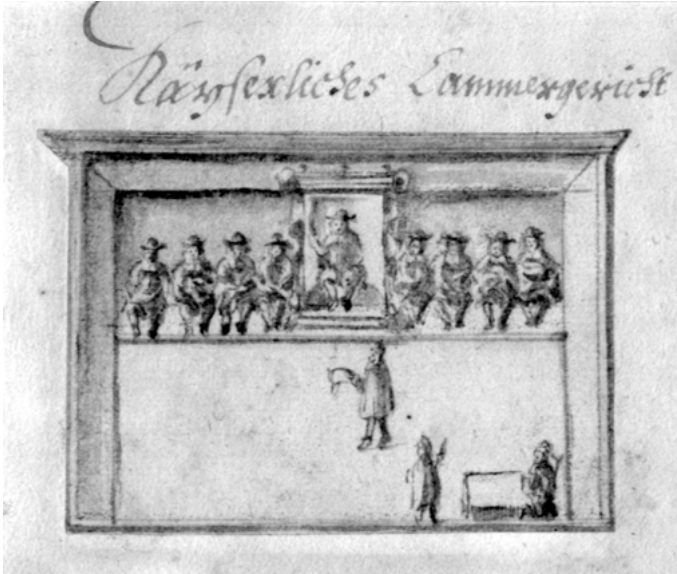 Käyserliches Cammergericht